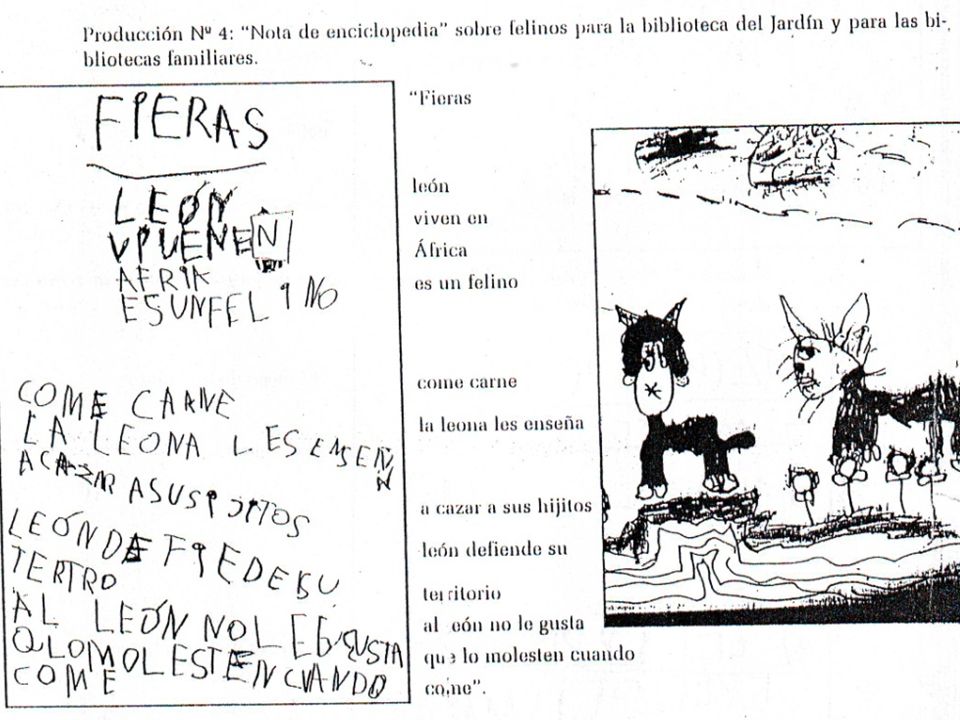 Producción Nº 4: “Nota de enciclopedia” sobre felinos para la biblioteca del Jardín y para las bi-
bliotecas familiares.
FIERAS
LEÓN
VIVENEN
AFRIA
ESUNFELINO
COME CARNE
LA LEONA LES ENSEÑ
ACAZAR ASUSIJITOS
LEÓNDEFIEDESU
TERTRO
AL LEÓN NOLEGUSTA
QLOMOLESTENCUANDO
COME
“Fieras
león
viven en
África
es un felino
come carne
la leona les enseña
a cazar a sus hijitos
león defiende su
territorio
al león no le gusta
que lo molesten cuando
come”.